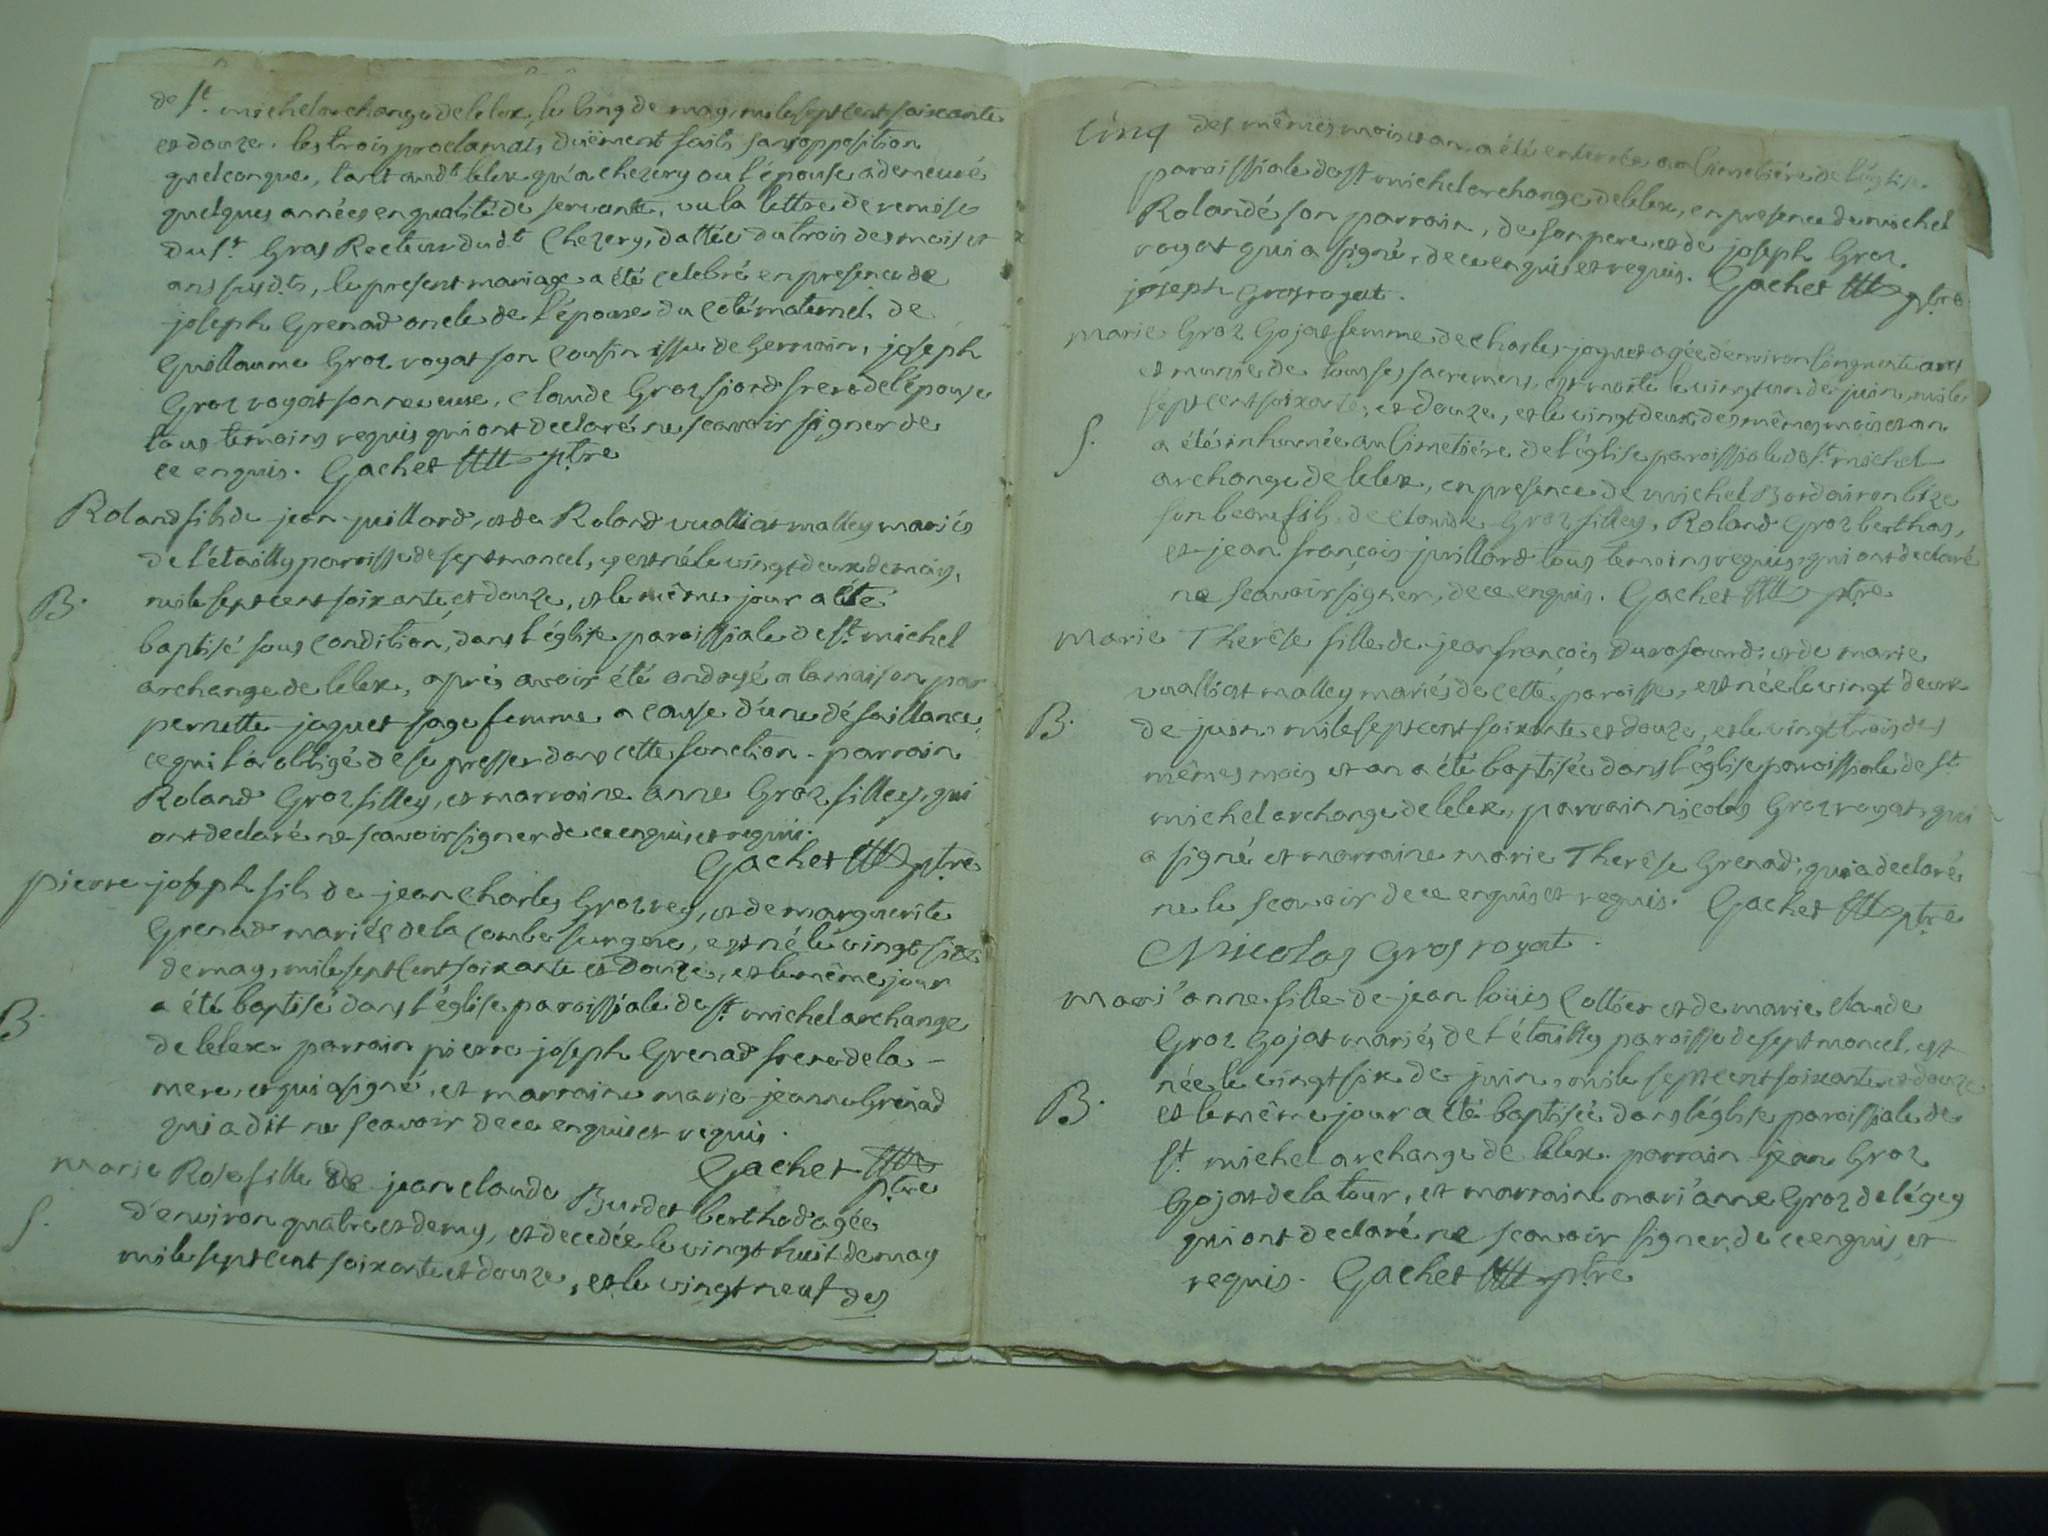 de st. michel archange de lelex, le cinq de may, mile sept cent soixante
et douze. les trois proclamats duëment faits sans opposition
quelconque, tant audt. lelex qu'a chezery ou l'épouse a demeuré
quelques années en qualité de servante, vu la lettre de remise
du sr. Gras Recteur dudt. Chezery, dattée du trois des mois et
ans susdts, le present mariage a été celebré en presence de
joseph Grenad oncle de l'épouse du coté maternel, de
Guillaume Groz royat son cousin issu de Germain, joseph
Groz royat son neveux, claude Groz fiord frere de l'épouse
tous temoins requis qui ont declaré ne scavoir signer de
ce enquis. Gachet ptre
Roland fils de jean juillard, et de Roland vualliat malley mariés
de l'étailly paroisse de septmoncel, est né le vingt deux de may,
B. mile sept cent soixante et douze, et le même jour a été
baptisé sous condition, dans l'église paroissiale de st. michel
archange de lelex, aprés avoir été ondoyé a la maison par
pernette jaquet sage femme a cause d'une défaillance,
ce qui l'a obligé de se presser dans cette fonction. parrain
Roland Groz filley, et marraine anne Groz filley, qui
ont declaré ne scavoir signer de ce enquis et requis.
Gachet ptre
pierre joseph fils de jean charles Groz rey, et de marguerite
Grenad mariés de la combe , est né le vingt six
de may, mile sept cent soixante et douze, et le même jour
B. a été baptisé dans l'église paroissiale de st. michel archange
de lelex. parrain pierre joseph Grenad frere de la
mere, et qui a signé, et marraine marie jeanne Grenad
qui a dit ne scavoir de ce enquis et requis.
Gachet ptre
marie Rose fille de jean claude Burdet berthod agée
S. d'environ quatre et demy, est decedée le vingt huit de may
mile sept cent soixante et douze, et le vingt neuf des
cinq des mêmes mois et an a été enterrée au cimetiére de l'église
paroissiale de st. michel archange de lelex, en presence de michel
Rolandé son parrain, de son pere, et de joseph Groz
royat qui a signé, de ce enquis et requis. Gachet ptre
joseph Gros royat.
marie Groz Gojat femme de charles jaquet agée d'environ cinquante ans
et munie de tous ses sacremens, est morte le vingt un de juin, mile
sept cent soixante, et douze, et le vingt deux des mêmes mois et an
S. a été inhumée au cimetiére de l'église paroissiale de st. michel
archange de lelex, en presence de michel Bordairon
son beau fils, de claude Groz filley, Roland Groz berthas,
et jean françois juillard tous temoins requis, qui ont declaré
ne scavoir signer, de ce enquis. Gachet ptre
marie Therêse fille de jean françois Durafourd, et de marie
vualliat malley mariés de cette paroisse, est née le vingt deux
B. de juin mile sept cent soixante et douze, et le vingt trois des
mêmes mois et an a été baptisée dans l'église paroissiale de st.
michel archange de lelex, parrain nicolas Groz royat, qui
a signé et marraine marie Therêse Grenad, qui a declaré
ne le scavoir de ce enquis et requis. Gachet ptre
Nicolas Gros royat.
mari'anne fille de jean loüis Coltier et de marie claude
Groz Gojat mariés de l'étailly paroisse de septmoncel, est
née le vingt six de juin, mile sept cent soixante et douze
B. et le même jour a été baptisée dans l'église paroissiale de
st. michel archange de lelex. parrain jean Groz
Gojat de la tour, et marraine mari'anne Groz de légey
qui ont declaré ne scavoir signer, de ce enquis et
requis. Gachet ptre